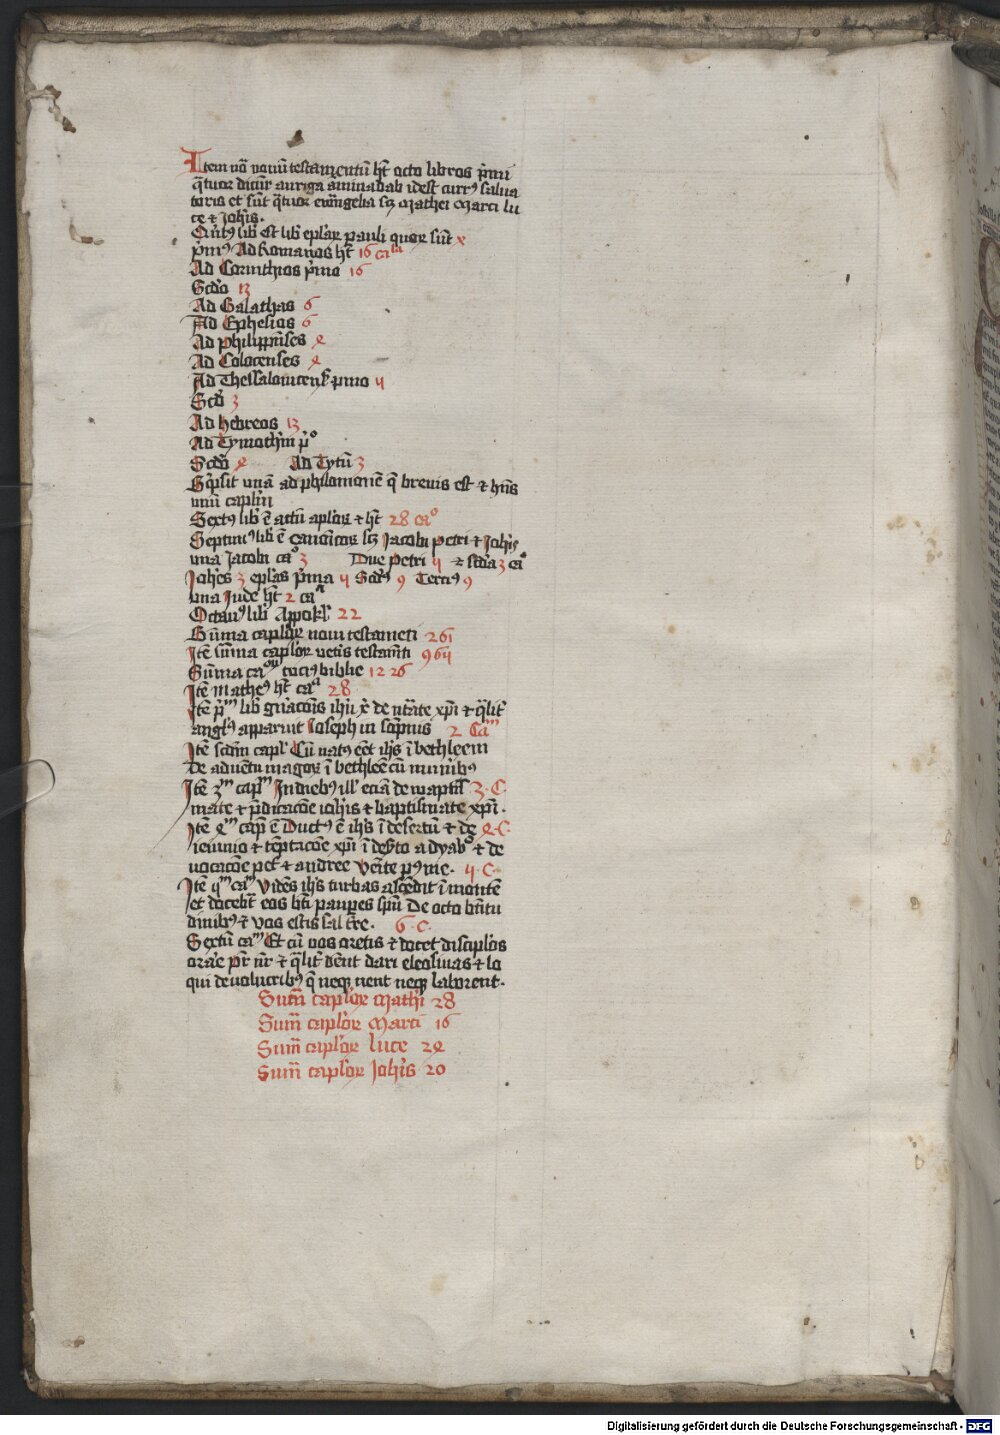 Item nō nouū testamentū hꝫ octo libros pͥmi
qͣtuor dicūr auriga aminadab idest curr⁹ salua
toris et sūt qͣtuor euāngelia scꝫ Mathei Marci lu
ce ⁊ Joh̄is.
Qūt⁹ lib̄ est lib̄ epl̄aꝝ pauli quoꝝ sūt
pͥm⁹ Ad Romanos hꝫ 16 caͭˡᵃ
Ad Corinthios pͥmo 16
Scd̄o 13
Ad Galathas 6
Ad Ephesios 6
Ad philippēses ꝝ
Ad Colocenses ꝝ
Ad Thessalonicens̄ pͥmo ꝟ
Scd̄o 3
Ad Hebreos 13
Ad Tymothm̄ pͦ
Scd̄o ꝝ Ad Tytū 3
Sc̄psit vnā ad philomonē q̄ breuis est ⁊ hn̄s
vnū caplm̄
Sext⁹ lib̄ ē actū apl̄oꝝ ⁊ hꝫ 28 caͦ
Septim⁹ lib̄ ē canōicoꝝ scꝫ Jacobi petri ⁊ Joh̄is
vna Jacobi caͦ Due petri ⁊ scd̄a 3 caͣ
Joh̄es 3 epl̄as pͥma Scd̄a 9 Terci⁹ 9
vna Jude hꝫ 2 caͣ
Octau⁹ lib̄ Appok̄ 22
Sūma capl̄oꝝ noui testamēti 261
Itē sūma capl̄oꝝ vetīs testamēti 96ꝟ
Sūma ca⁰ꝝ toci⁹ biblie 12 26
Itē Mathe⁹ hꝫ caͣ 28
Itē pͫ lib̄ gn̄acōnis ih̄u x̄ de nr̄atē xp̄i ⁊ qͣlit̄
angl̄⁹ apparuit Joseph in somp̄nis 2 Caᵐ
Itē scdm̄ capl̄ Cū nat⁹ eēt ih̄s ī bethleem
De aduētu magoꝝ ī bethleē cū munib⁹
Itē 3ᵐ capᵐ Indieb⁹ ill' eciā de wap̄tis̄ 3·C·
mate ⁊ p̄dicacōe ioh̄is ⁊ baptismate xp̄i.
Itē ꝝᵐ cap̄ ē Duct⁹ ē ih̄s ī desertū ⁊ de ꝝ·C·
ieiunio ⁊ tēptacōe xp̄i ī desto a dyab̄ ⁊ de
uocacōe pet̄ ⁊ andree Venite p⁹ me. ꝟ·C·
Itē ꝟᵐ caᵐ Vidēs ih̄s turbas ascēdit ī montē
et docebat eos bt̄i paupes sp̄u De octo btītu
dinib⁹ ⁊ vos estis sal tr̄e. 6·C·
Sextū caᵐ Et cū vos oretis ⁊ docet discipl̄os
orāe pr̄ nr̄ ⁊ qͣlit̄ dēnt dari eleosinas ⁊ lo
qui deuolucrib⁹ q̄ neqꝫ nent neqꝫ laborent.
Sum̄ capl̄oꝝ Mathi 28
Sum̄ capl̄oꝝ Marci 16
Sum̄ capl̄oꝝ luce 2ꝝ
Sum̄ capl̄oꝝ Joh̄is 20
Digitalisierung gefördert durch die Deutsche Forschungsgemeinschaft - DFG